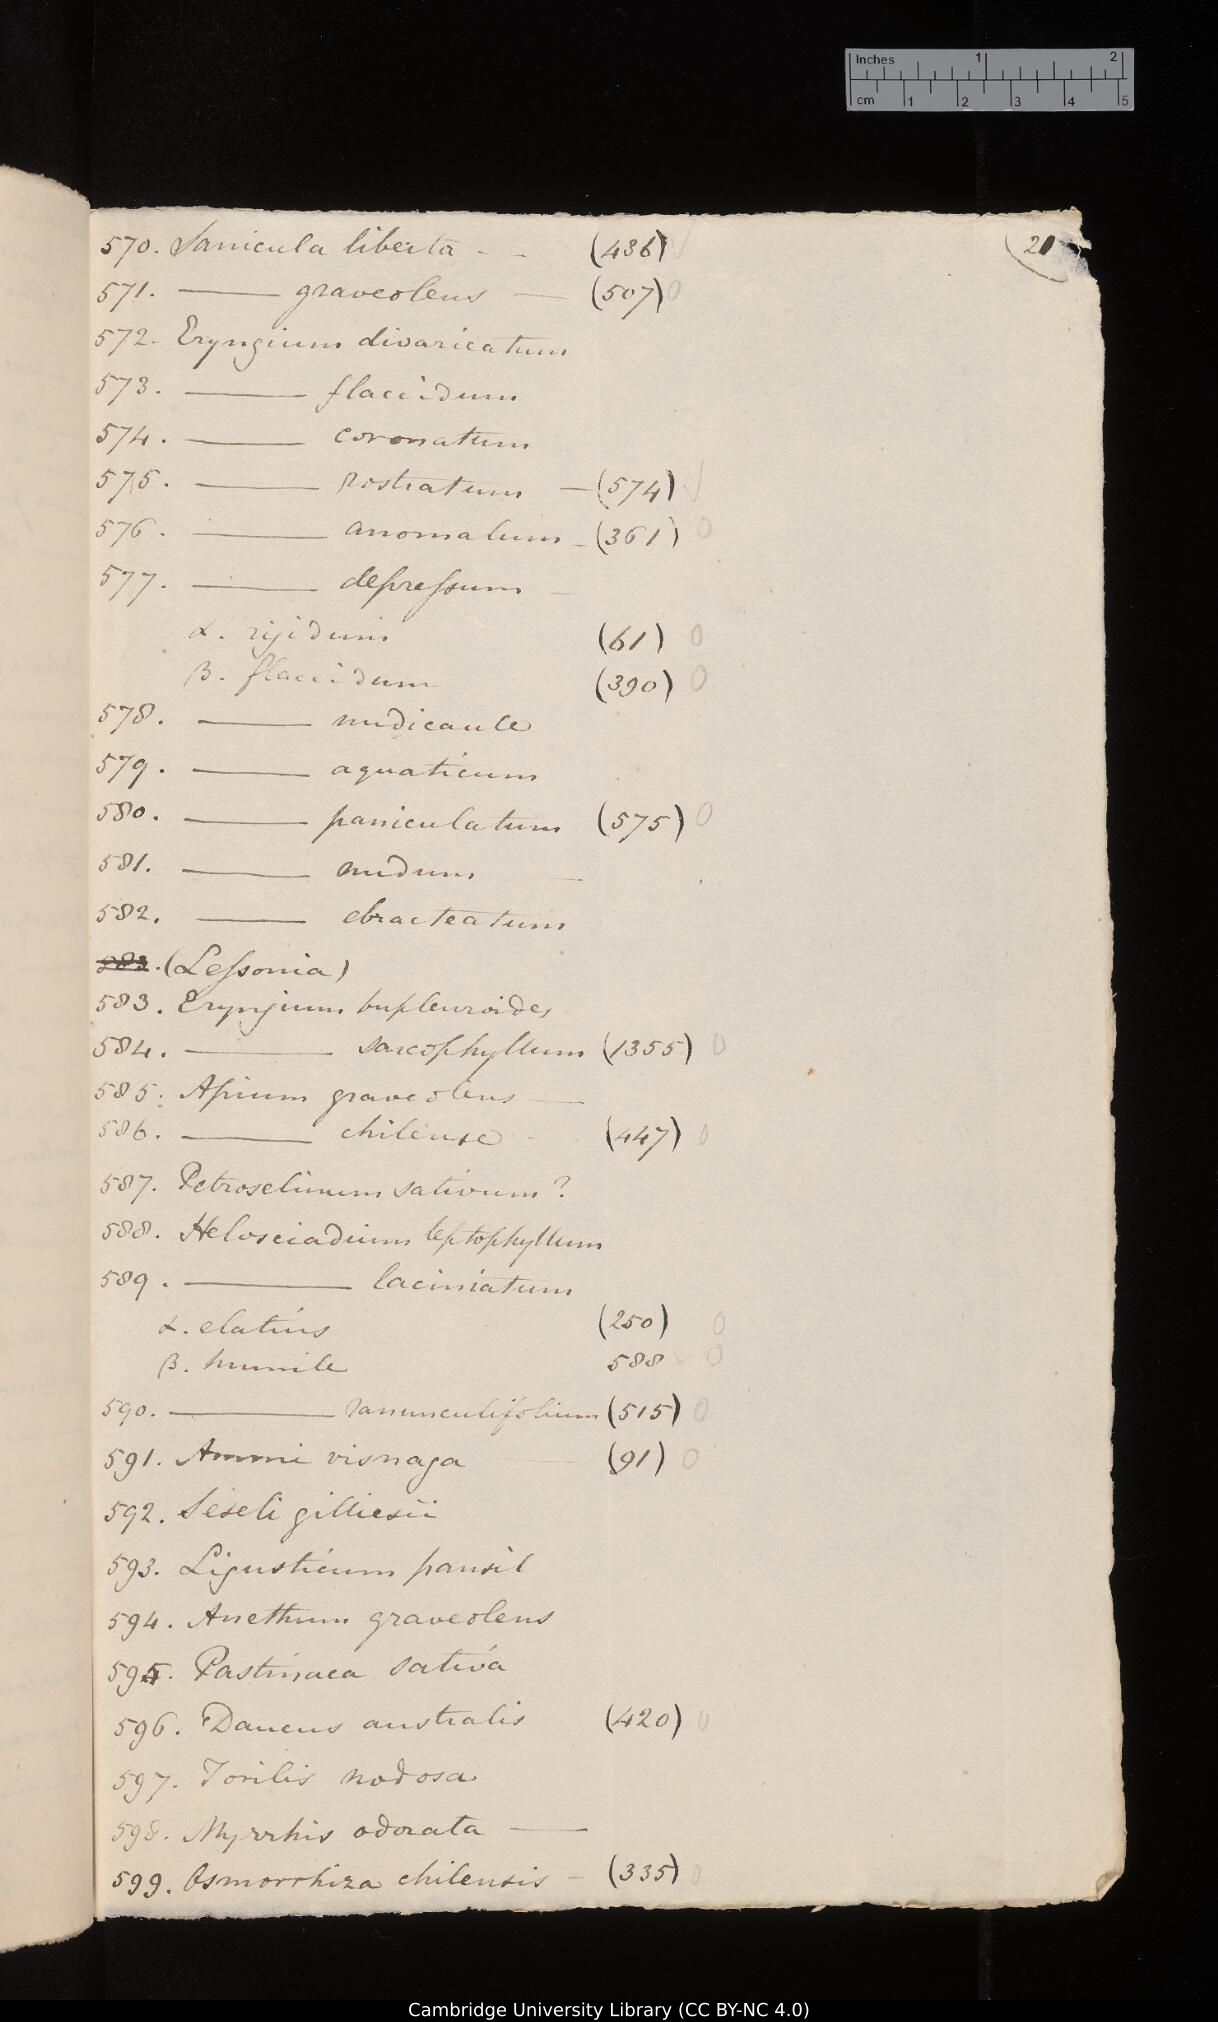 Inches 1 2
cm 1 2 3 4 5
21
570. Sanicula liberta - - (436) √
571. —— graveolens — (507) 0
572. Eryngium divaricatum
573. —— flaccidum
574. —— coronatum
575. —— rostratum — (574) √
576. —— anomalum - (361) 0
577. —— depreſsum
α. rigidum (61) 0
β. flaccidum (390) 0
578. —— nudicaule
579. —— aquaticum
580. —— paniculatum (575) 0
581. —— nudum —
582. —— ebracteatum
583. (Leſsonia)
583. Eryngium bupleuroides
584. —— sarcophyllum (1355) 0
585. Apium graveolens —
586. —— chilense - (447) 0
587. Petroselinum sativum?
588. Helosciadium leptophyllum
589. —— laciniatum
α. elatius (250) 0
β. humile 588 × 0
590. —— ranunculifolium (515) 0
591. Ammi visnaga — (91) 0
592. Seseli gilliesii
593. Ligusticum pansil
594. Anethum graveolens
595. Pastinaca sativa
596. Daucus australis (420) 0
597. Torilis nodosa
598. Myrrhis odorata —
599. Osmorrhiza chilensis - (335) 0
Cambridge University Library (CC BY-NC 4.0)